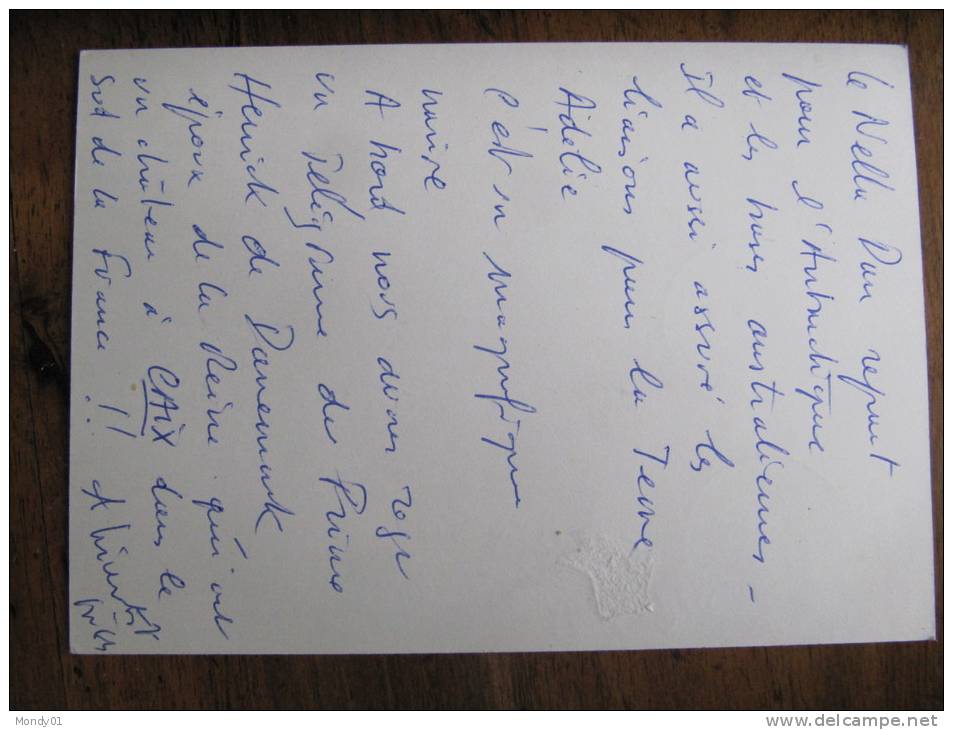 Le Nella Dan repart
pour l'Antarctique
et les bases australiennes –
Il a aussi assuré les
liaisons pour la Terre
Adélie
C'est un magnifique
navire
A bord nous avons reçu
un Télégramme du Prince
Henrick de Danemark
époux de la Reine qui ont
un château à CAIX dans le
Sud de la France !! A bientôt
Mondy01
www.delcampe.net